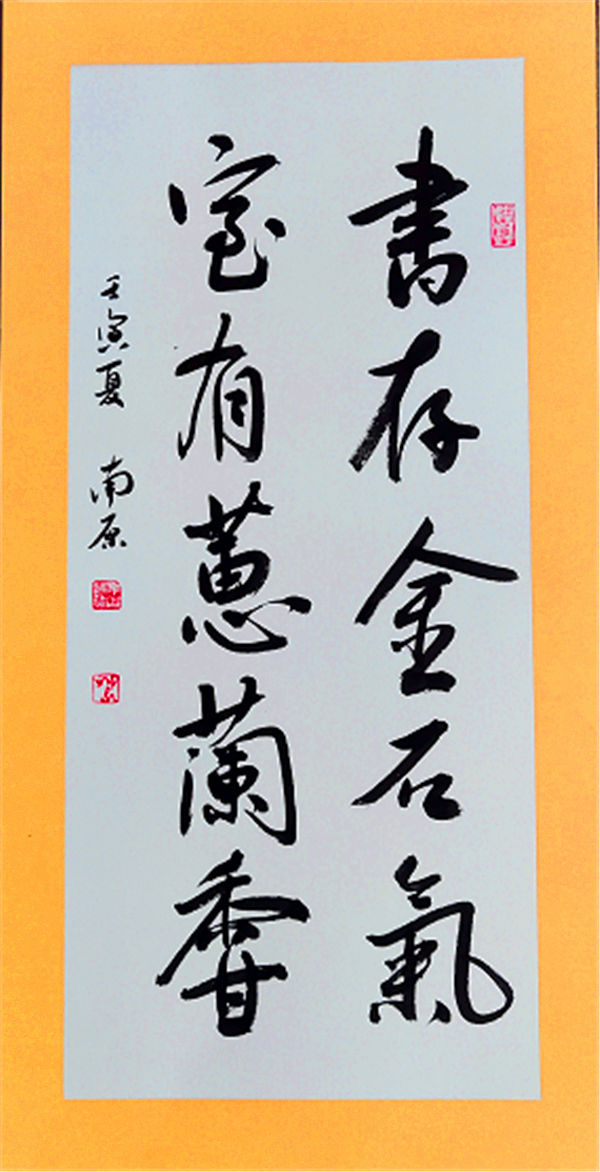 書存金石氣
室有蕙蘭香
壬寅夏 南原